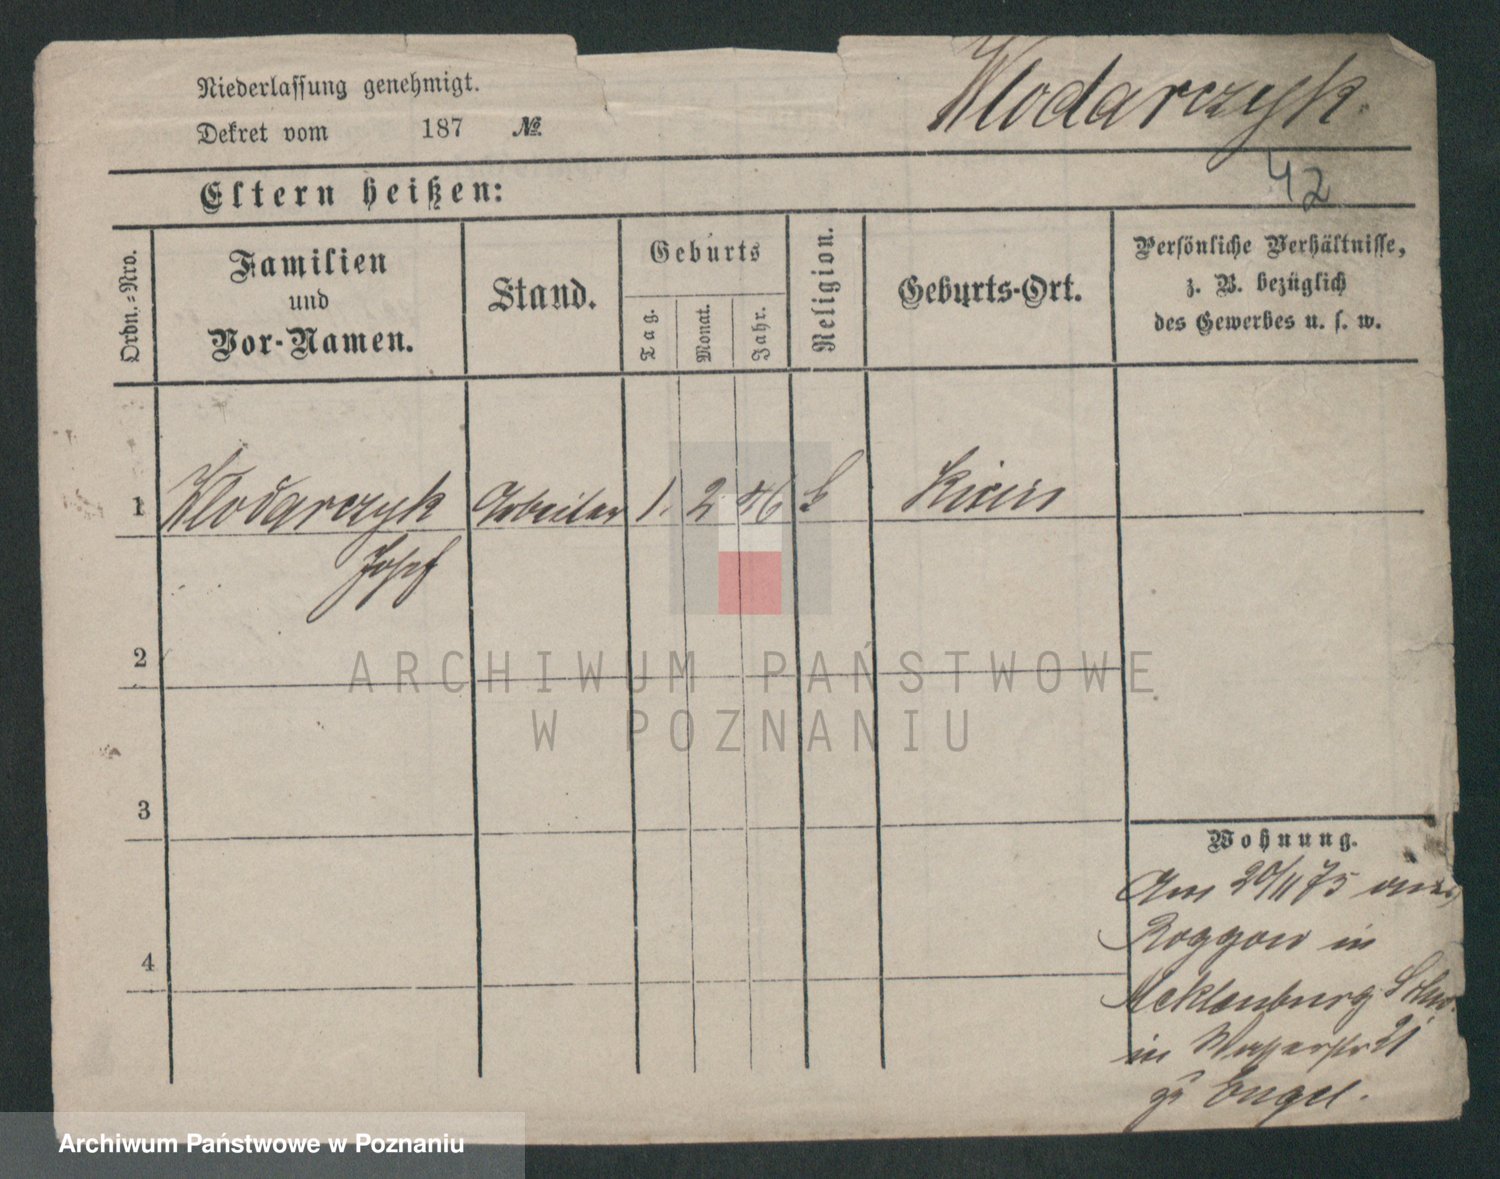 Niederlassung genehmigt.
Dekret vom 187 №
Wlodarczyk.
42
Eltern heißen:
Ordn.-Nro.
Familien
und
Vor-Namen.
Stand.
Geburts
Tag.
Monat.
Jahr.
Religion.
Geburts-Ort.
Persönliche Verhältnisse,
z. B. bezüglich
des Gewerbes u. s. w.
1 Wlodarczyk Arbeiter 1. 2 46 k Kicin
Josef
2
3
4
Wohnung.
Am 20/11 75 aus
Roggow in
Meklenburg Schw.
in Wasserstr 21
zu Engel.
ARCHIWUM PAŃSTWOWE
W POZNANIU
Archiwum Państwowe w Poznaniu